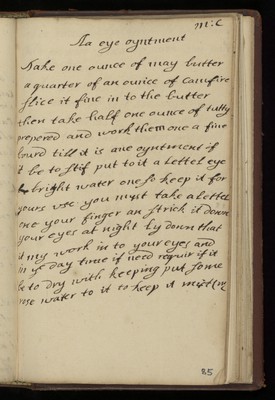 mr: C
Aa eye oyntment
Take one ounce of may butter
a quarter of an ounce of Camfire
slice it fine in to the butter
then take half one ounce of tutty
prepered and work them one a fine
bourd till it is ane oyntment if
it be to stif put to it a lettel eye
bright water one so keep it for
yours use you must take a lettel
one your finger an strick it down
your eyes at night ly down that
it my work in to your eyes and
in ye day time if need requir if it
be to dry with keeping put some
rose water to it to keep it
85